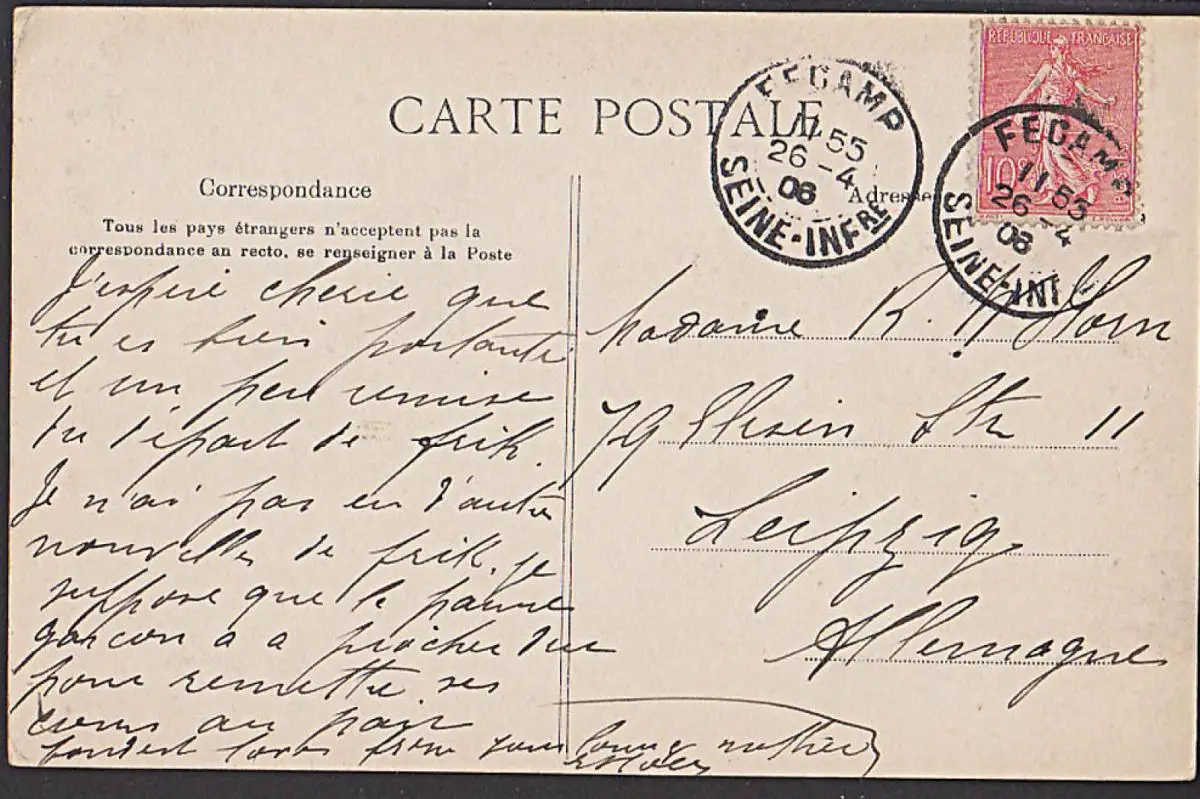 RÉPUBLIQUE FRANÇAISE
10c
CARTE POSTALE
FECAMP
11 55
26 - 4
06
SEINE-INFRE
FECAMP
11 55
26 - 4
06
SEINE-INF
Correspondance
Tous les pays étrangers n'acceptent pas la
correspondance au recto, se renseigner à la Poste
J'espère cherie que
tu es bien portante
et un peu remise
du départ de frik.
Je n'ai pas eu d'autre
nouvelles de frik. je
suppose que le pauvre
garçon a a piocher dur
pour remettre ses
cours au pair
Adresse
Madame R. Horn
79 Str 11
Leipzig
Allemagne